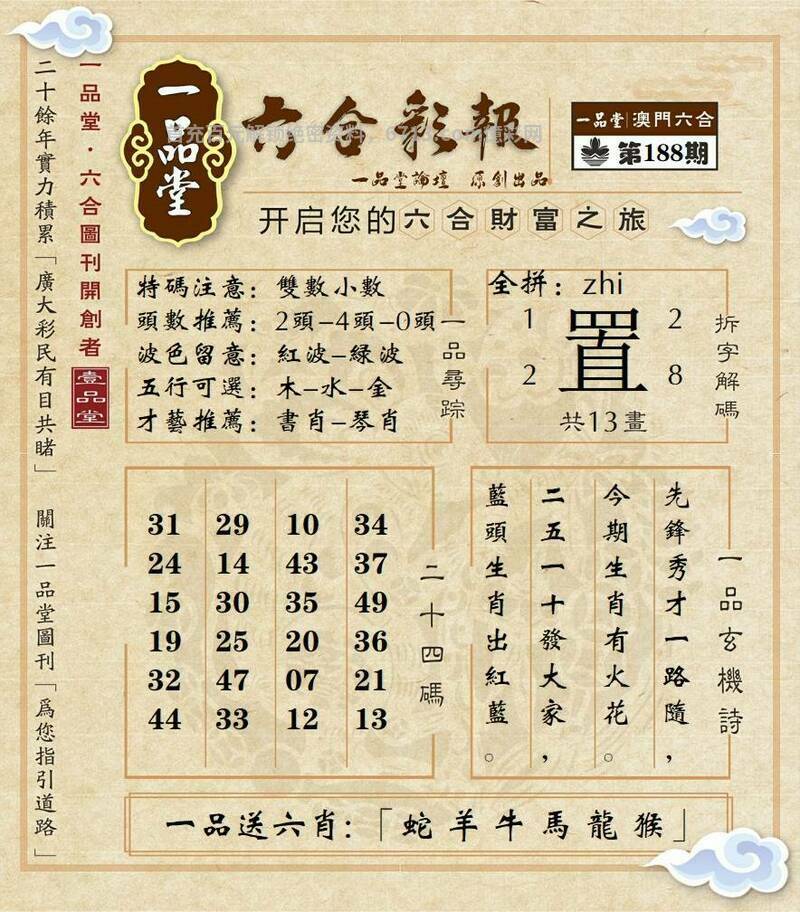 一品堂
六合彩報
一品堂論壇 原創出品
开启您的六合財富之旅
一品堂|澳門六合
第188期
一品堂·六合圖刊開創者
壹品堂
二十餘年實力積累「廣大彩民有目共睹」
關注一品堂圖刊「爲您指引道路」
特碼注意：雙數小數
頭數推薦：2頭-4頭-0頭
波色留意：紅波-綠波
五行可選：木-水-金
才藝推薦：書肖-琴肖
一品尋踪
全拼：zhi
1 2
置
2 8
共13畫
拆字解碼
31 29 10 34
24 14 43 37
15 30 35 49
19 25 20 36
32 47 07 21
44 33 12 13
二十四碼
一品玄機詩
先鋒秀才一路隨，
今期生肖有火花。
二五一十發大家，
藍頭生肖出紅藍。
一品送六肖：「蛇羊牛馬龍猴」